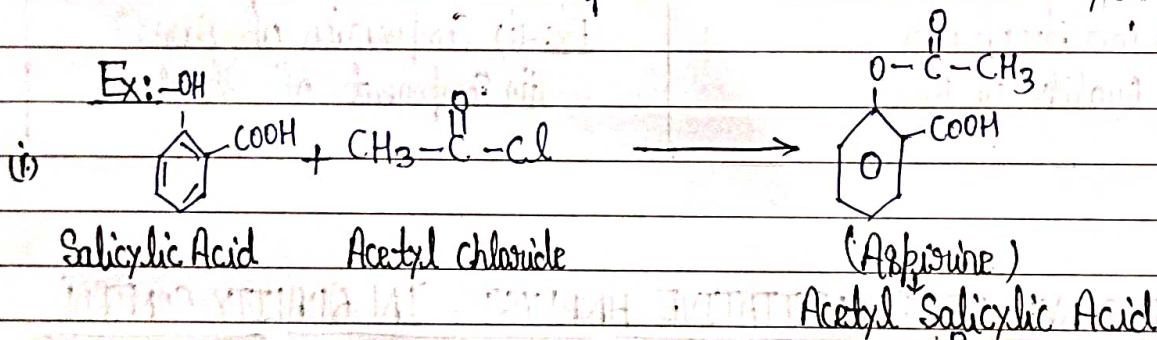 Ex:
O
O-C-CH3
-OH
O
(i.) -COOH + CH3-C-Cl → -COOH
O
Salicylic Acid Acetyl chloride (Aspirine)
↓
Acetyl Salicylic Acid